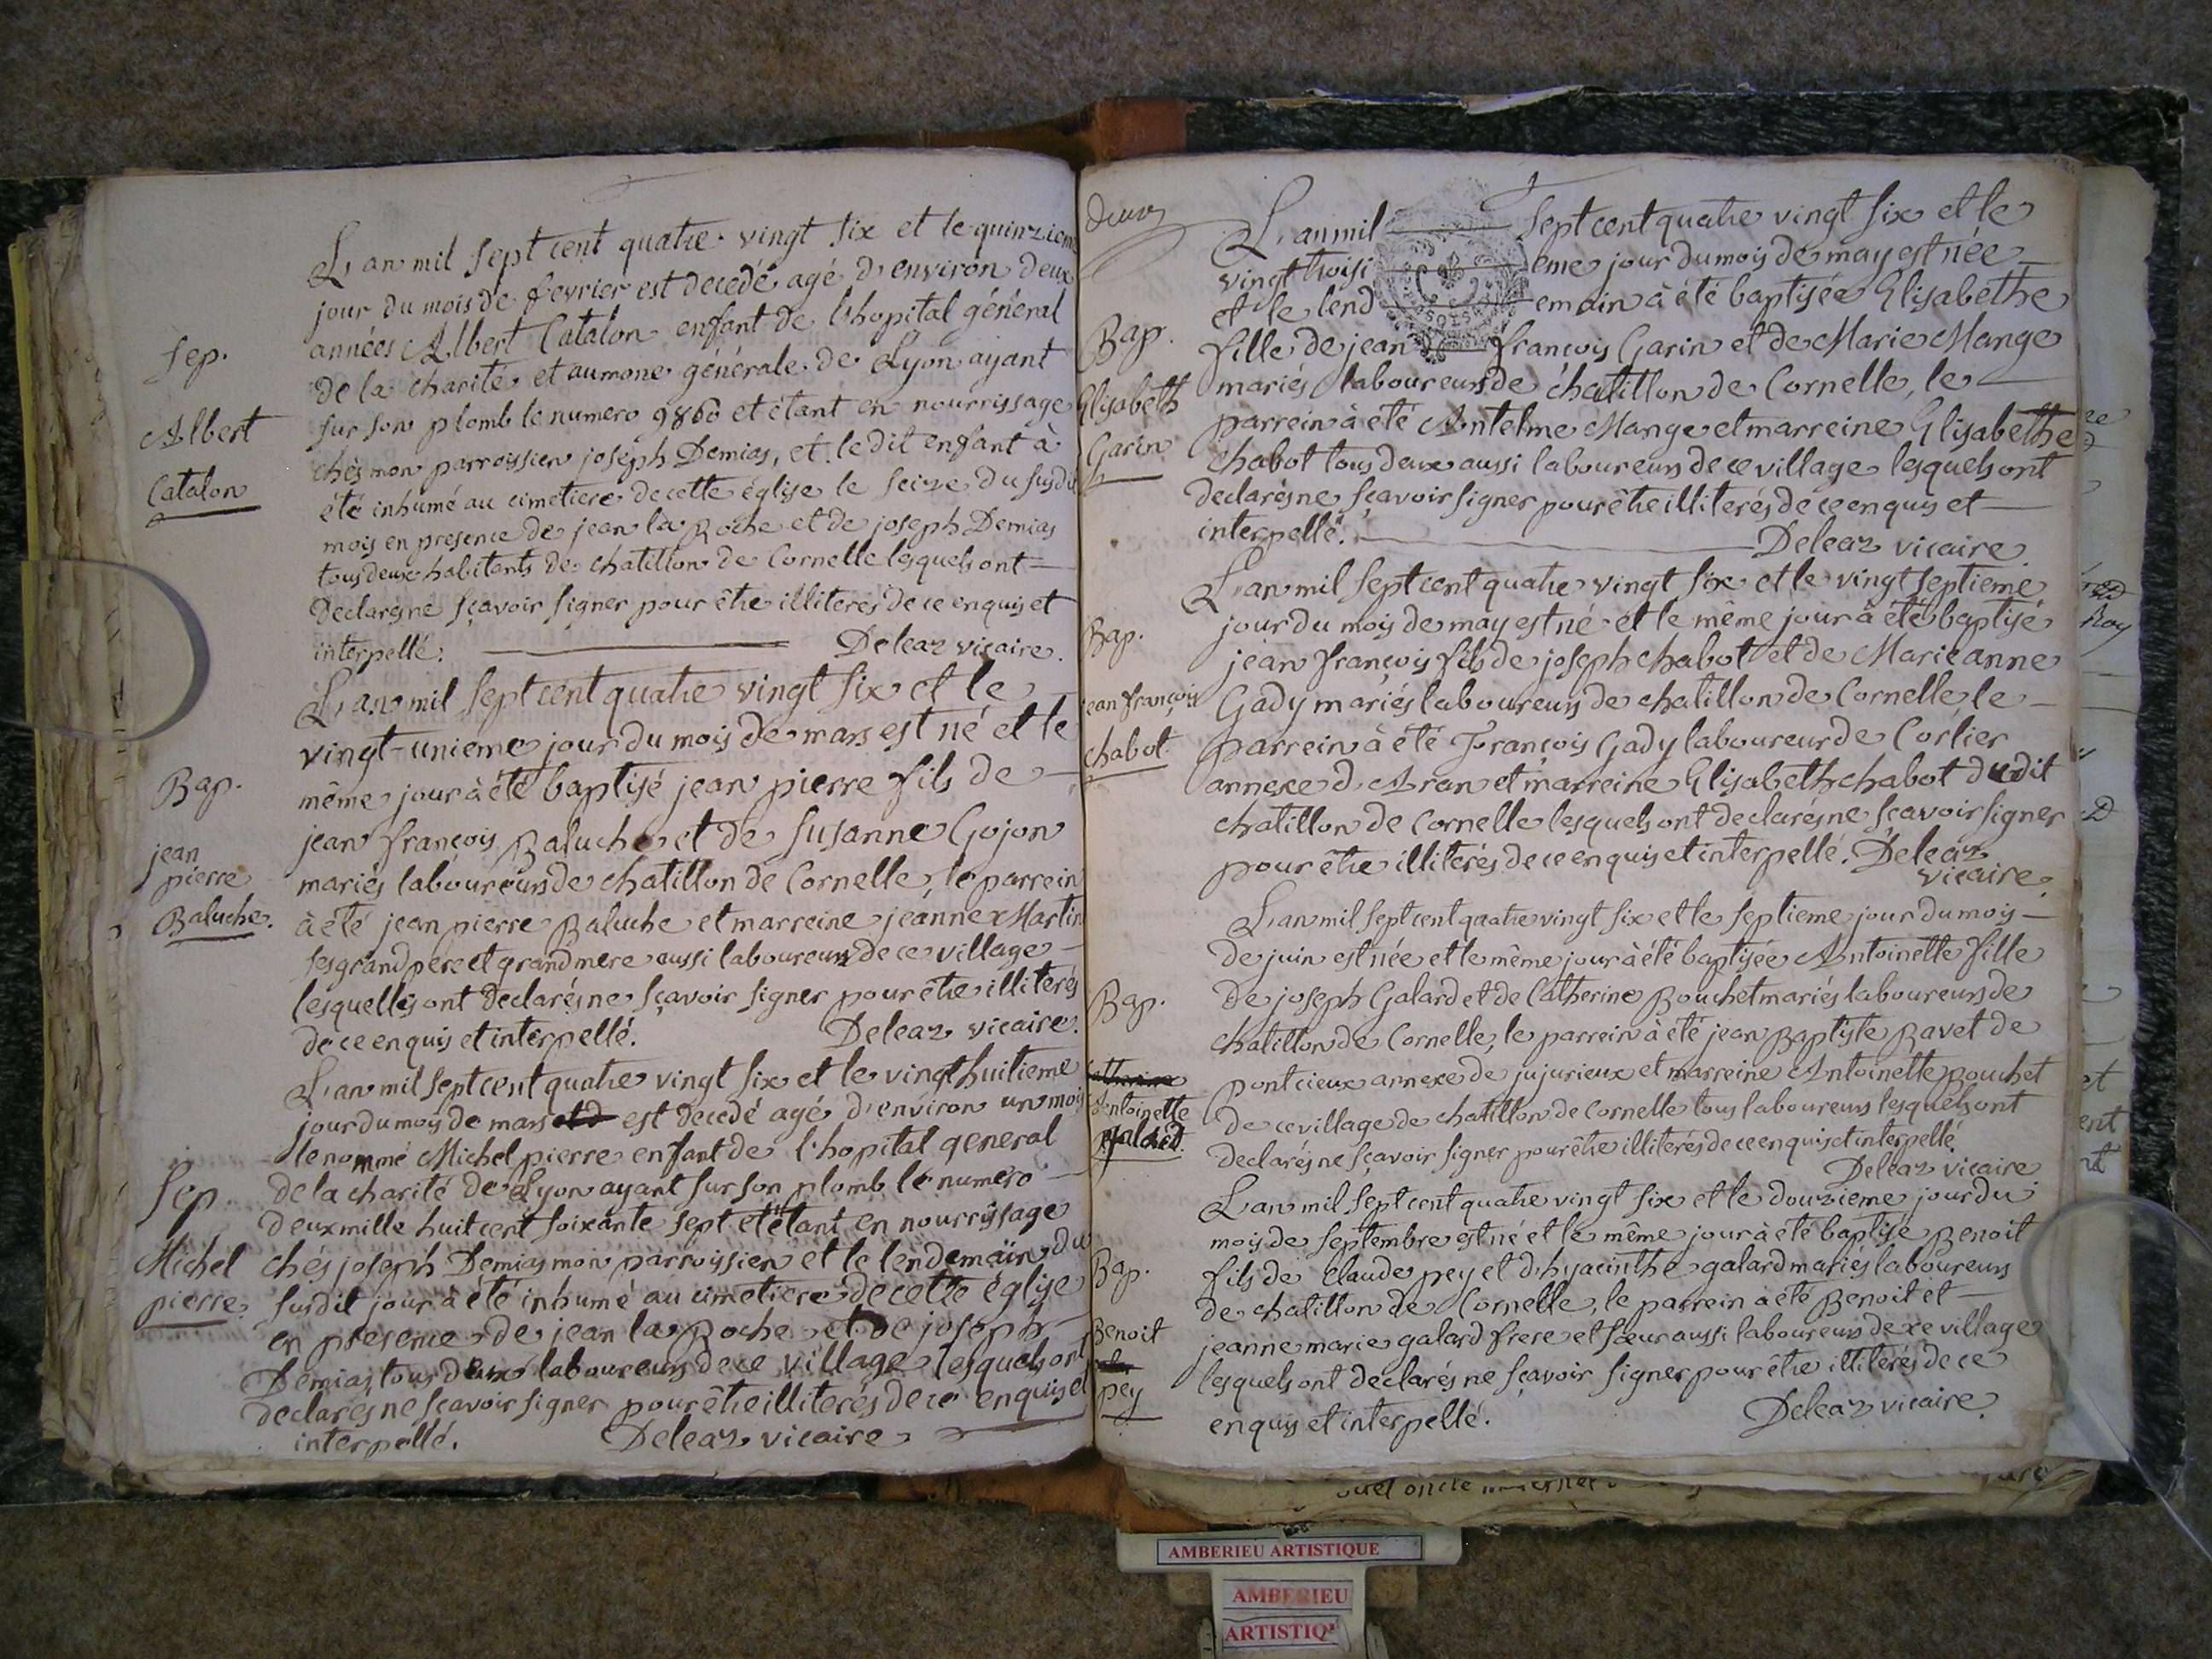 L'an mil sept cent quatre vingt six et le quinzieme
jour du mois de fevrier est decedé agé d'environ deux
années Albert Catalon enfant de l'hopital général
de la charité et aumone générale de Lyon ayant
sur son plomb le numero 9860 et étant en nourrissage
chés mon parroissien joseph Demias, et le dit enfant à
été inhumé au cimetiere de cette église le seize du susdit
mois en presence de jean la Roche et de joseph Demias
tous deux habitants de chatillon de Cornelle lesquels ont
declarés ne sçavoir signer pour être illiterés de ce enquis et
interpellé. Deleaz vicaire.
Sep.
Albert
Catalon
L'an mil sept cent quatre vingt six et le
vingt-unieme jour du mois de mars est né et le
même jour à été baptisé jean pierre fils de
jean françois Baluche et de susanne Gojon
mariés laboureurs de chatillon de Cornelle, le parrein
à été jean pierre Baluche et marreine jeanne Martin
ses grand pere et grand mere aussi laboureurs de ce village
lesquelles ont declarés ne sçavoir signer pour être illiterés
de ce enquis et interpellé. Deleaz vicaire.
Bap.
jean
pierre
Baluche.
L'an mil sept cent quatre vingt six et le vingt huitieme
jour du mois de mars est decedé agé d'environ un mois
le nommé Michel pierre enfant de l'hopital general
de la charité de Lyon ayant sur son plomb le numero
deux mille huit cent soixante sept et étant en nourrissage
chés joseph Demias mon parroissien et le lendemain du
susdit jour à été inhumé au cimetiere de cette église
en presence de jean la Roche et de joseph
Demias tous deux laboureurs de ce village lesquels ont
declarés ne sçavoir signer pour être illiterés de ce enquis et
interpellé. Deleaz vicaire
Sep.
Michel
pierre.
L'an mil sept cent quatre vingt six et le
vingt troisieme jour du mois de may est née
et le lendemain à été baptisée Elisabethe
fille de jean françois Garin et de Marie Mange
mariés laboureurs de chatillon de Cornelle, le
parrein à été Antelme Mange et marreine Elisabethe
chabot tous deux aussi laboureurs de ce village lesquels ont
declarés ne sçavoir signer pour être illiterés de ce enquis et
interpellé. Deleaz vicaire.
Bap.
Elisabeth
Garin
L'an mil sept cent quatre vingt six et le vingt septieme
jour du mois de may est né et le même jour à été baptisé
jean françois fils de joseph chabot et de Marie anne
Gady mariés laboureurs de chatillon de Cornelle le
parrein à été François Gady laboureur de Corlier
annexe d'Aran et marreine Elisabeth chabot dudit
chatillon de Cornelle lesquels ont declarés ne sçavoir signer
pour être illiterés de ce enquis et interpellé. Deleaz
vicaire.
Bap.
jean françois
chabot.
L'an mil sept cent quatre vingt six et le septieme jour du mois
de juin est née et le même jour à été baptisée Antoinette fille
de joseph Galard et de Catherine Bouchet mariés laboureurs de
chatillon de Cornelle, le parrein à été jean Baptiste Ravet de
pontcieux annexe de jujurieux et marreine Antoinette Bouchet
de ce village de chatillon de Cornelle tous laboureurs lesquels ont
declarés ne sçavoir signer pour être illiterés de ce enquis et interpellé.
Deleaz vicaire
Bap.
Catherine
Antoinette
galard.
L'an mil sept cent quatre vingt six et le douzieme jour du
mois de septembre est né et le même jour à été baptisé Benoit
fils de Claude pey et d'hyacinthe galard mariés laboureurs
de chatillon de Cornelle, le parrein à été Benoit et
jeanne marie galard frere et sœur aussi laboureurs de ce village
lesquels ont déclarés ne sçavoir signer pour être illiterés de ce
enquis et interpellé. Deleaz vicaire.
Bap.
Benoit
pey
AMBERIEU ARTISTIQUE
AMBERIEU
ARTISTIQ